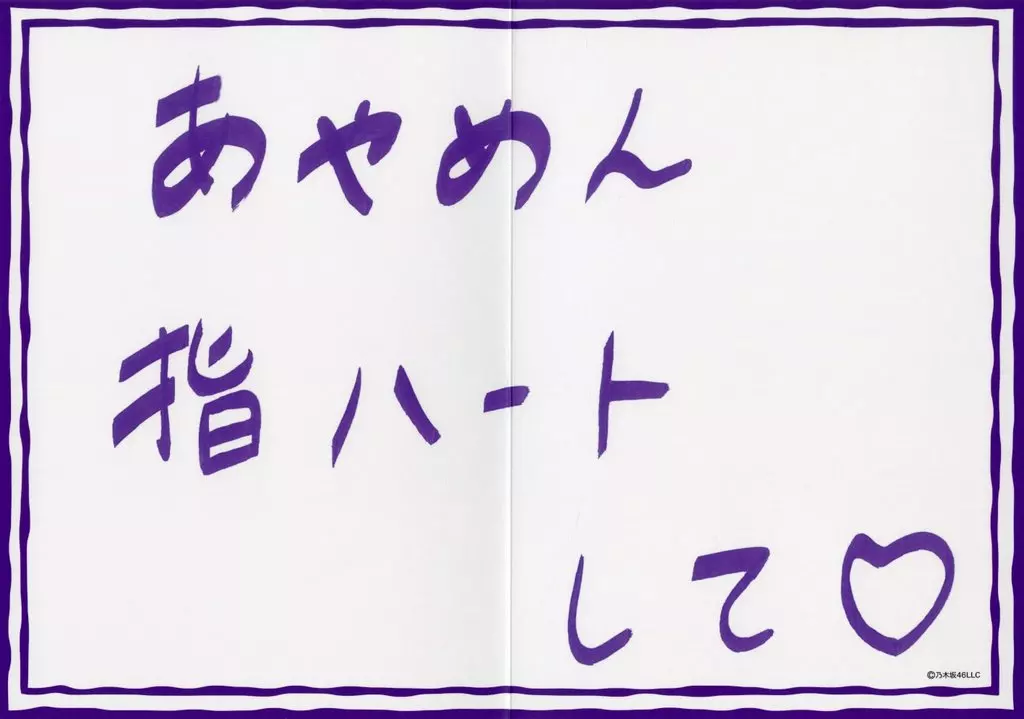 あやめん
指ハート
して♡
©乃木坂46LLC